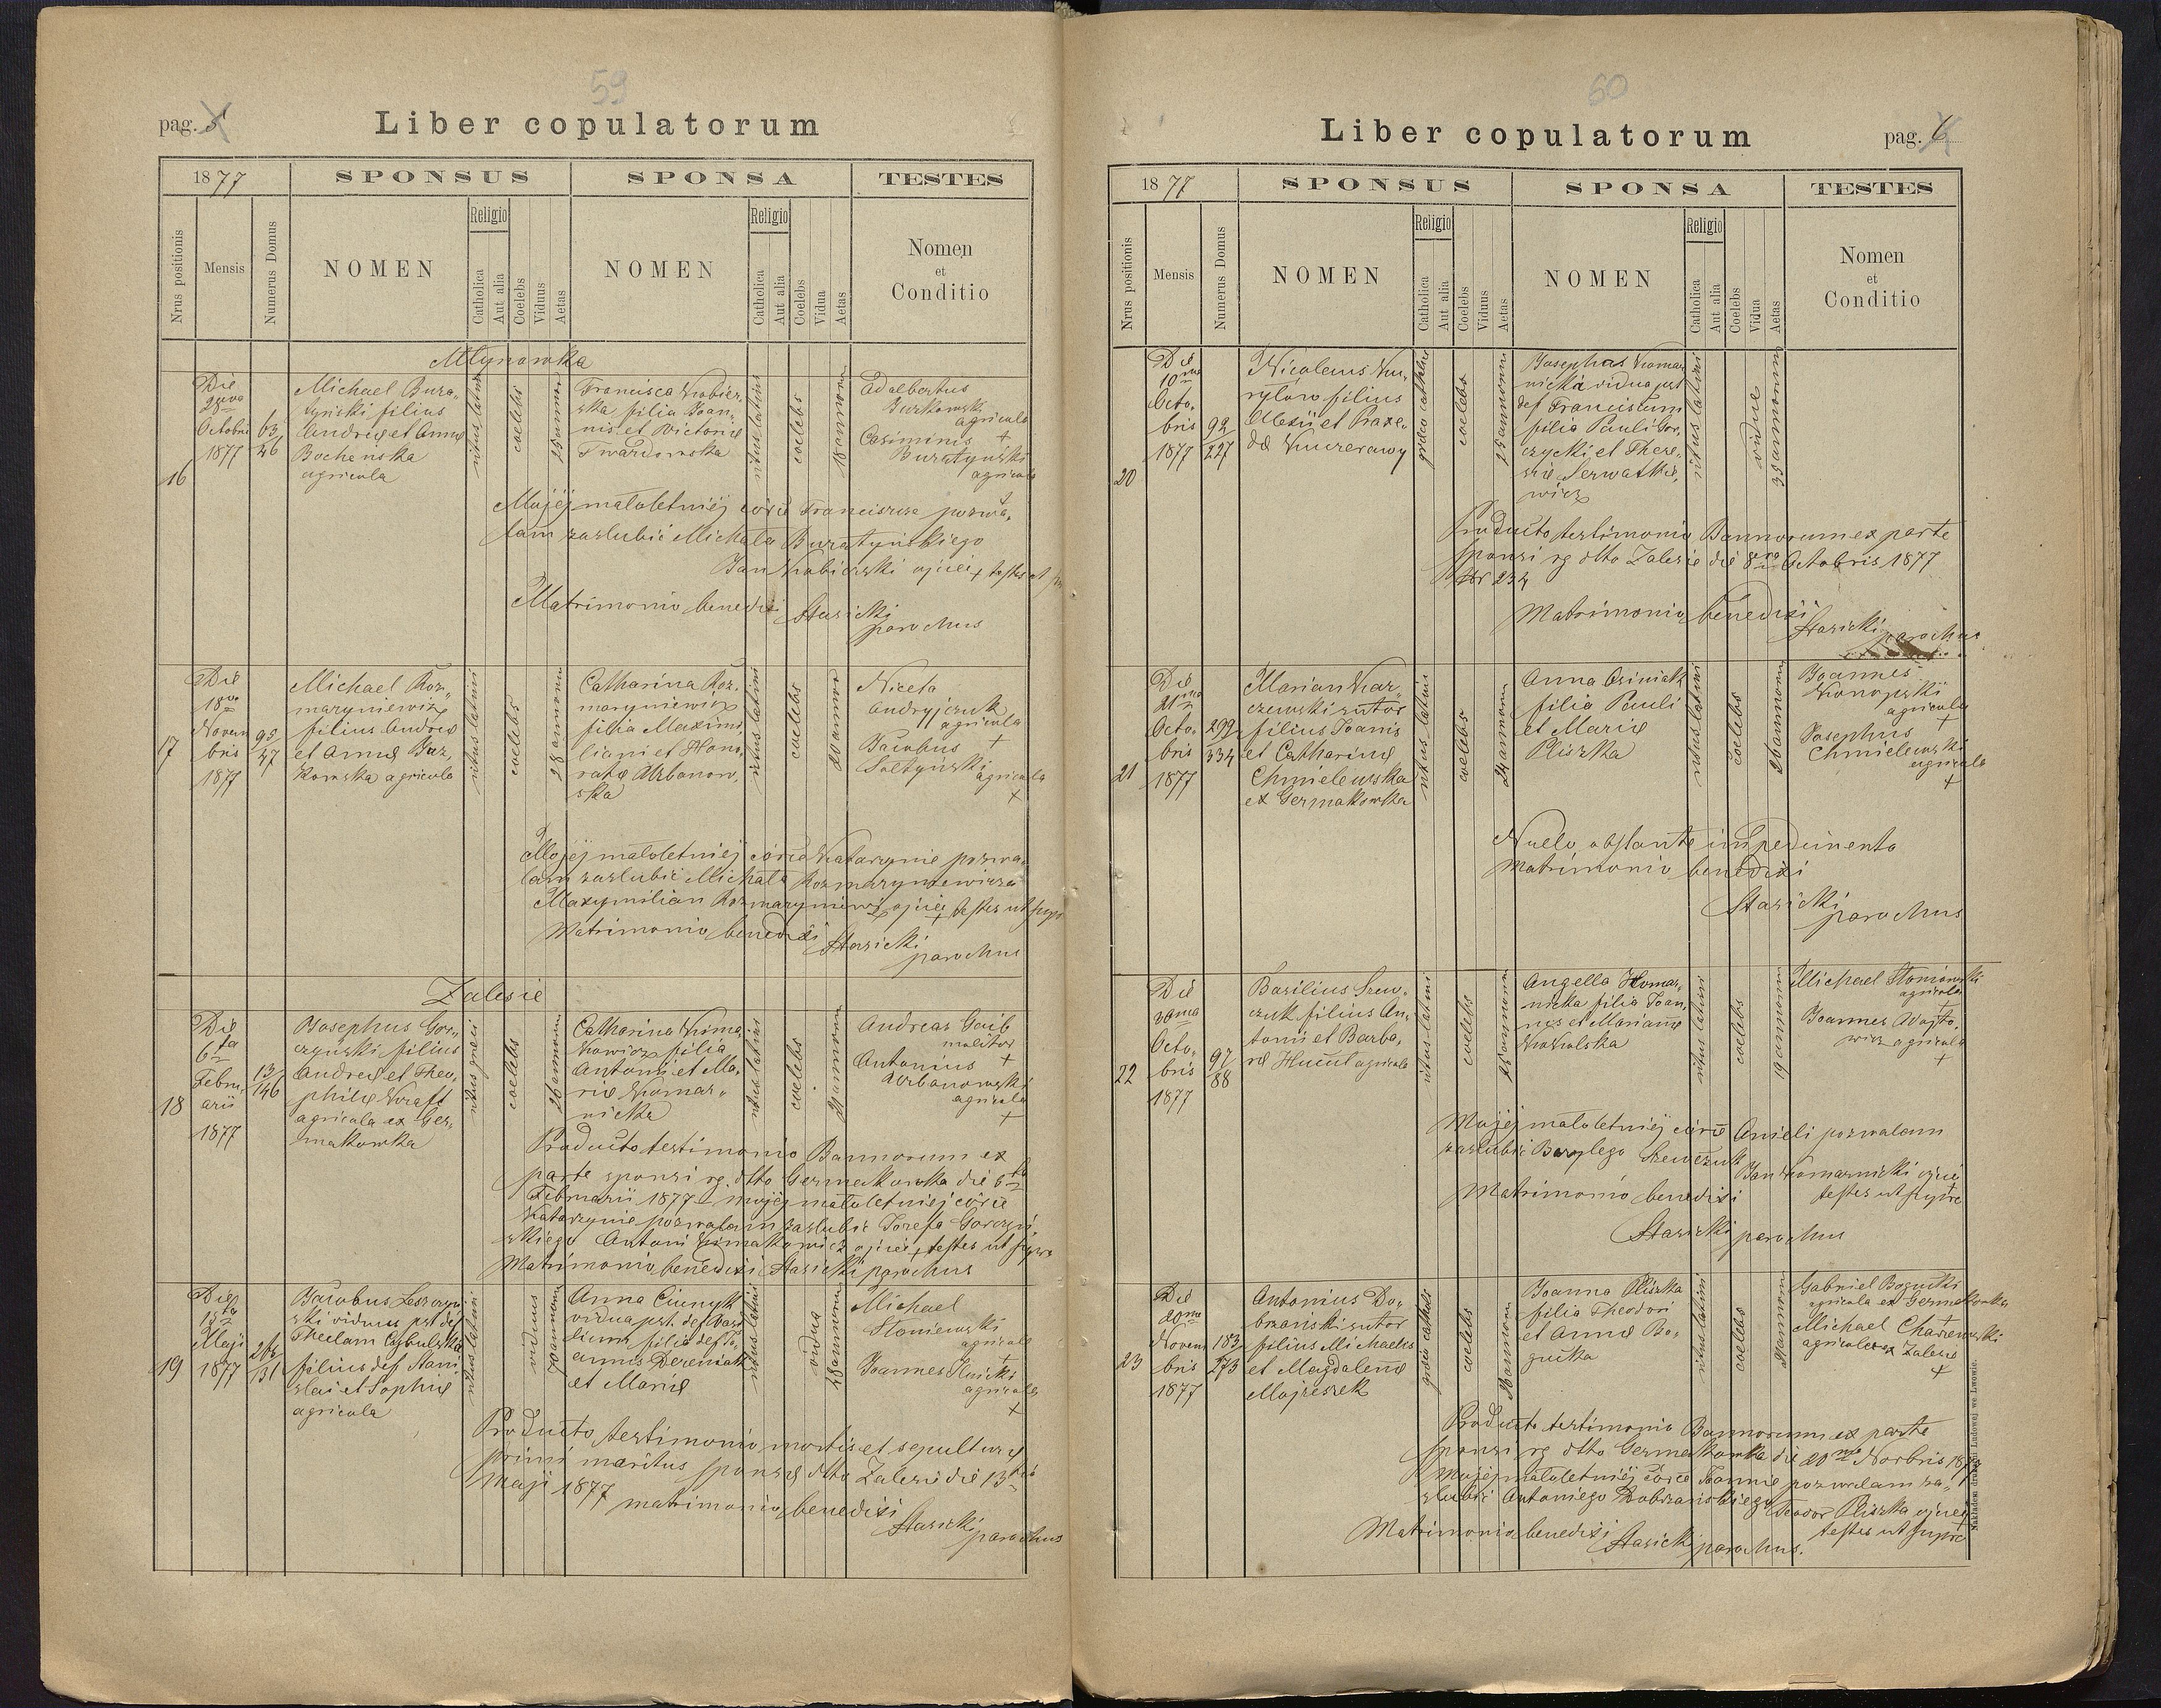 59
pag. 5
Liber copulatorum
1877
SPONSUS
SPONSA
TESTES
Nrus positionis
Mensis
Numerus Domus
NOMEN
Religio
Catholica
Aut alia
Coelebs
Viduus
Aetas
NOMEN
Religio
Catholica
Aut alia
Coelebs
Vidua
Aetas
Nomen
et
Conditio
Młynówka
16
Die
Octobris
1877
63
46
Michael Bura„
tyński filius
Andreæ et Annæ
Bochenska
agricola
ritus latini
coelebs
25 annor
Francisca Kobier„
ska filia Joan„
nis et Victoriæ
Twardowska
ritus latinus
coelebs
18 annorum
Adalbertus
Burkowski
agricola
+
Casimirus
Buratyński
agricola
Mojéj małoletniéj córce Franciszce pozwa„
lam zaślubić Michała Buratyńskiego
Jan Kobierski ojciec + testes ut
Matrimonio benedixi Stasicki
parochus
17
Die
18va
Novem
bris
1877
95
47
Michael Roz„
maryniewicz
filius Andreæ
et Annæ Bur„
kowska agricola
ritus latini
coelebs
28 annorum
Catharina Roz„
maryniewicz
filia Maximi„
liani et Hono„
ratæ Urbanow„
ska
ritus latini
coelebs
20 annor
Niceta
Andryjczuk
agricola
+
Jacobus
Sołtyński
agricola
+
Mojéj małoletniéj córce Katarzynie pozwa„
lam zaślubić Michała Rozmaryniewicza
Maxymilian Rozmaryniewicz ojciec + testes ut supra
Matrimonio benedixi Stasicki
parochus
Zalesie
18
Die
6ta
Febru„
arii
1877
13
146
Josephus Gor„
czynski filius
Andreæ et Theo„
philæ Kraft
agricola ex Ger„
makowka
ritus græci
coelebs
26 annorum
Catharina Kima„
kowicz filia
Antoni et Ma„
riæ Komar„
nicka
ritus latinus
coelebs
21 annorum
Andreas Gaib
molitor
+
Antonius
Urbanowski
agricola
+
Producto testimonio Bannorum ex
parte sponsi rg. dtto Germakowka die 6ta
Februarii 1877 – mojéj małoletniéj córce
Katarzynie pozwalam zaślubić Józefa Gorczyń„
skiego Antoni Kimakowicz ojciec + testes ut supra
Matrimonio benedixi Stasicki parochus
19
Die
15ta
Maji
1877
263
131
Jacobus Leszczyń„
ski viduus pst def
Theclam Cybulska
filius def Stani
slai et Sophiæ
agricola
ritus latini
viduus
annorum
Anna Ciunyk
vidua pst. def Vasi
lium filia def Jo„
annis Dereniak
et Mariæ
ritus latini
vidua
28 annorum
Michael
Stoniewski
agricola
+
Joannes Ilnicki
agricola
+
Producto testimonio mortis et sepulturæ
primi maritus sponsæ dtto Zalesie die 13tia
Maji 1877 matrimonio benedixi
Stasicki
parochus
60
Liber copulatorum
pag. 6
1877
SPONSUS
SPONSA
TESTES
Nrus positionis
Mensis
Numerus Domus
NOMEN
Religio
Catholica
Aut alia
Coelebs
Viduus
Aetas
NOMEN
Religio
Catholica
Aut alia
Coelebs
Vidua
Aetas
Nomen
et
Conditio
20
Die
10ma
Octo„
bris
1877
92
227
Nicolaus Ku„
ryłów filius
Alexii et Praxe„
dæ Kuczerawy
græco cathol
coelebs
25 annorum
Josepha Komar
nicka vidua pst
def Franciscum
filia Pauli Gor„
czycki et There„
siæ Serwatkie„
wicz
ritus latini
viduæ
35 annorum
Producto testimonio Bannorum ex parte
sponsi rg dtto Zalesie die 8va Octobris 1877
Nr 234
Matrimonio benedixi
Stasicki parochus
21
Die
21ma
Octo„
bris
1877
299
334
Marian Kar„
czewski sutor
filius Joannis
et Catharinæ
Chmielewska
ex Germakowka
ritus latini
coelebs
24 annorum
Anna Osiniak
filia Pauli
et Mariæ
Pliszka
ritus latini
coelebs
26 annorum
Joannes
Konopski
agricola
+
Josephus
Chmielewski
agricola
+
Nullo obstante impedimento
Matrimonio benedixi
Stasicki
parochus
22
Die
Octo„
bris
1877
97
88
Basilius Szew„
czuk filius An„
tonii et Barba„
ræ Hucuł agricola
ritus latini
coelebs
25 annorum
Angella Komar„
nicka filia Joan„
nes et Mariannæ
Kokulska
ritus latini
coelebs
19 annorum
Michael Stoniewski
agricola
+
Joannes Wojto„
wicz agricola
+
Mojéj małoletniéj córce Anieli pozwalam
zaślubić Bazylego Szewczuk
Jan Komarnicki ojciec
+
testes ut supra
Matrimonio benedixi
Stasicki parochus
23
Die
20ma
Novem
bris
1877
183
173
Antonius Do„
brzanski sutor
filius Michaelis
et Magdalenæ
Majzeszek
græci cathol
coelebs
annorum
Joanna Pliszka
filia Theodori
et Annæ Bo„
gucka
ritus latini
coelebs
21 annorum
Gabriel Bogucki
agricola ex Germakowka
Michael Charzewski
agricola ex Zalesie
+
Producto testimonio Bannorum ex parte
sponsi rg dtto Germakowka die 20ma Novbris 1877
Mojéj małoletniéj córce Joannie pozwalam za„
ślubić Antoniego Dobrzańskiego Teodor Pliszka ojciec
+
testes ut supra
Matrimonio benedixi Stasicki parochus.
Nakładem drukarni Ludowej we Lwowie.